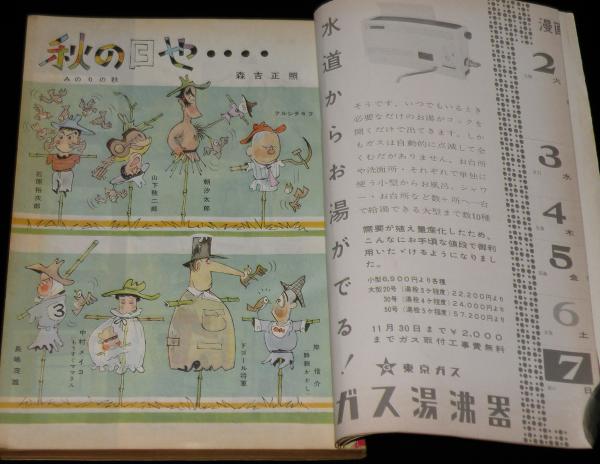 秋の日や‥‥
みのりの秋
森吉正照
フルシチョフ
朝汐太郎
山下敬二郎
石原裕次郎
岸信介
静観かかし
ドゴール将軍
中村メイコ
もうすぐママさん
長嶋茂雄
3
水道からお湯がでる!
そうです、いつでもいるとき
必要なだけのお湯がコックを
開くだけで出てきます。しか
もガスは自動的に点滅して全
くむだがありません。お台所
や洗面所・それぞれで単独に
使う小型からお風呂、シャワ
ー・お台所など数ヶ所へ一台
で給湯できる大型まで数10種
需要が殖え量産化したため、
こんなにお手頃な値段で御利
用いたゞけるようになりまし
た。
小型6,900円より各種
大型20号(湯栓3ケ程度)22,200円より
30号(湯栓4ケ程度)24,000円より
50号(湯栓5ケ程度)57,200円より
11月30日まで¥2,000
までガス取付工事費無料
東京ガス
ガス湯沸器
漫画
2
火
3
水
4
木
5
金
6
土
7
日